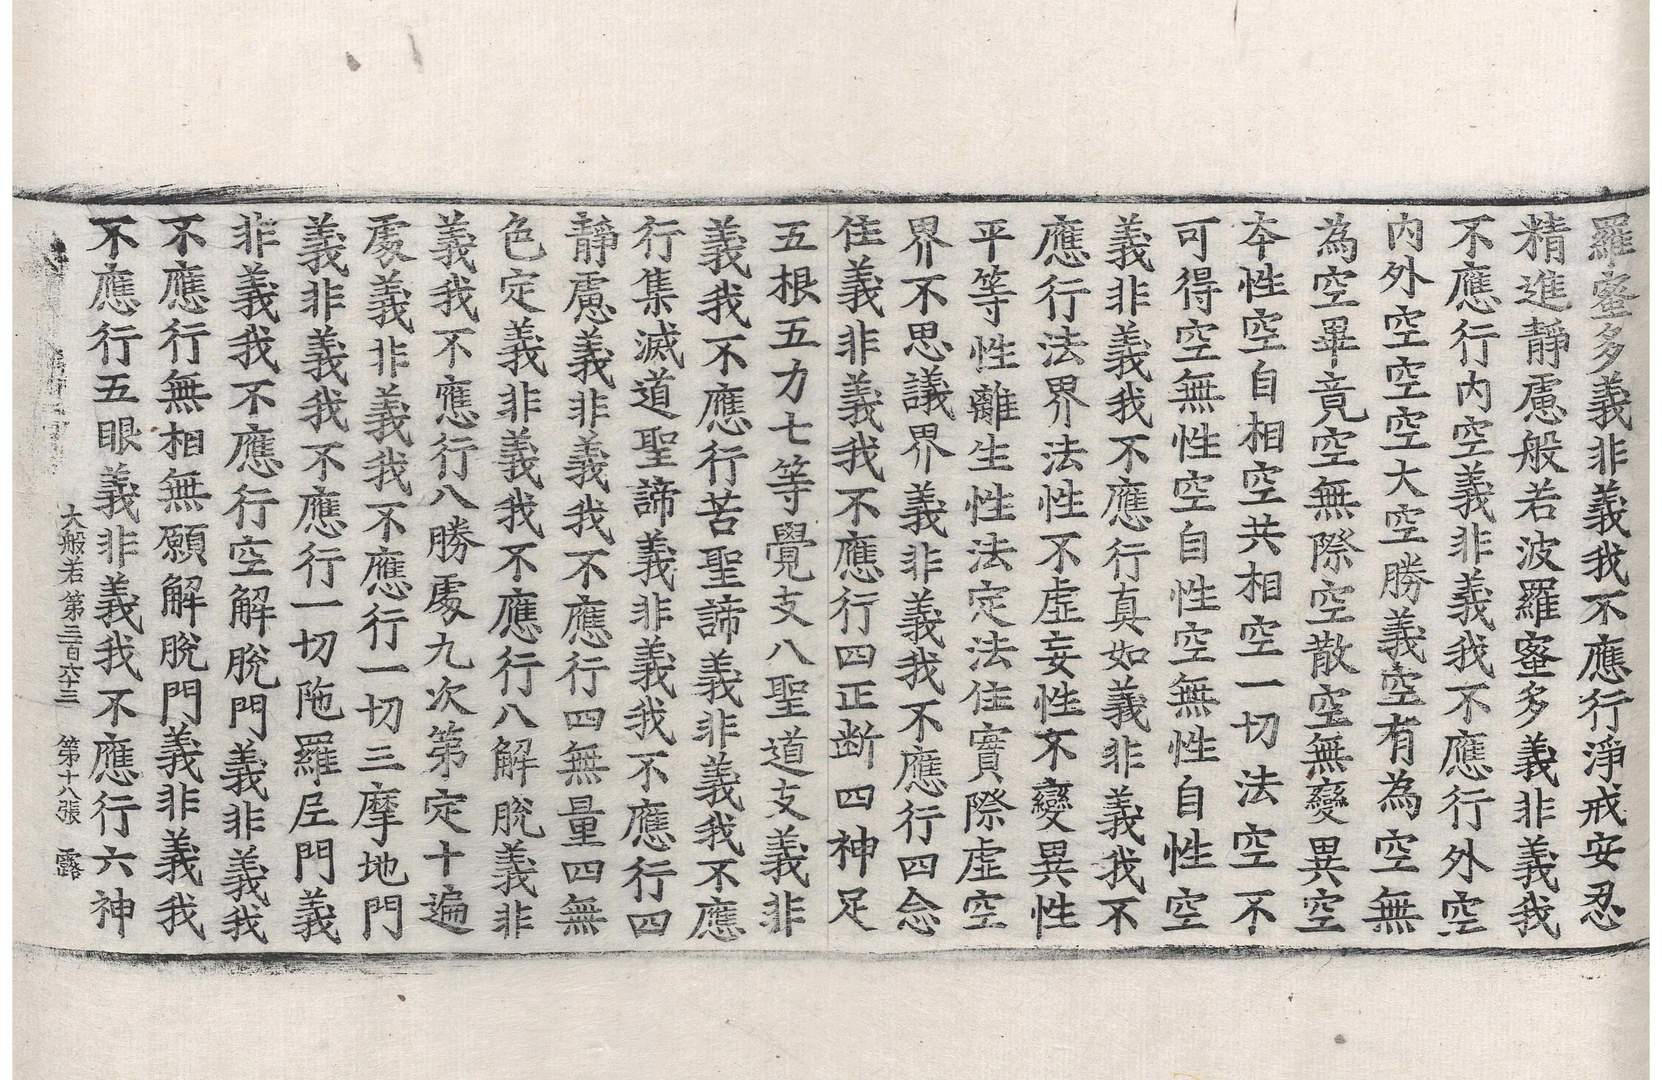 羅蜜多義非義我不應行淨戒安忍
精進靜慮般若波羅蜜多義非義我
不應行內空義非義我不應行外空
內外空空空大空勝義空有為空無
為空畢竟空無際空散空無變異空
本性空自相空共相空一切法空不
可得空無性空自性空無性自性空
義非義我不應行真如義非義我不
應行法界法性不虛妄性不變異性
平等性離生性法定法住實際虛空
界不思議界義非義我不應行四念
住義非義我不應行四正斷四神足
五根五力七等覺支八聖道支義非
義我不應行苦聖諦義非義我不應
行集滅道聖諦義非義我不應行四
靜慮義非義我不應行四無量四無
色定義非義我不應行八解脫義非
義我不應行八勝處九次第定十遍
處義非義我不應行一切三摩地門
義非義我不應行一切陁羅尼門義
非義我不應行空解脫門義非義我
不應行無相無願解脫門義非義我
不應行五眼義非義我不應行六神
大般若第三百六十三 第十八張 露